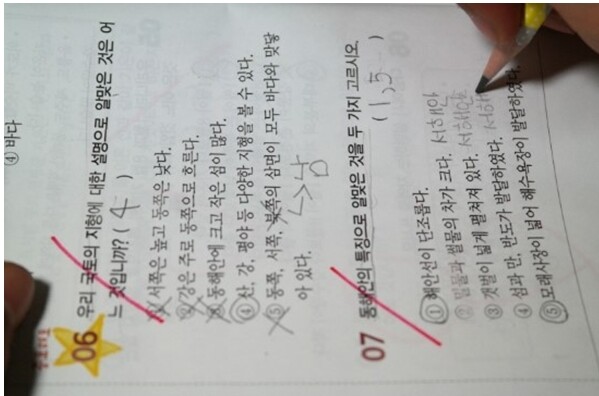 ④ 바다
중요체크
06 우리 국토의 지형에 대한 설명으로 알맞은 것은 어
느 것입니까? ( 4 )
① 서쪽은 높고 동쪽은 낮다.
② 강은 주로 동쪽으로 흐른다.
③ 동해안에 크고 작은 섬이 많다.
④ 산, 강, 평야 등 다양한 지형을 볼 수 있다.
⑤ 동쪽, 서쪽, 북쪽의 삼면이 모두 바다와 맞닿
아 있다. ↳ 남
07 동해안의 특징으로 알맞은 것을 두 가지 고르시오.
( 1, 5 )
① 해안선이 단조롭다.
② 밀물과 썰물의 차가 크다. 서해안
③ 갯벌이 넓게 펼쳐져 있다. 서해안
④ 섬과 만, 반도가 발달하였다. 서해
⑤ 모래사장이 넓어 해수욕장이 발달하였다.